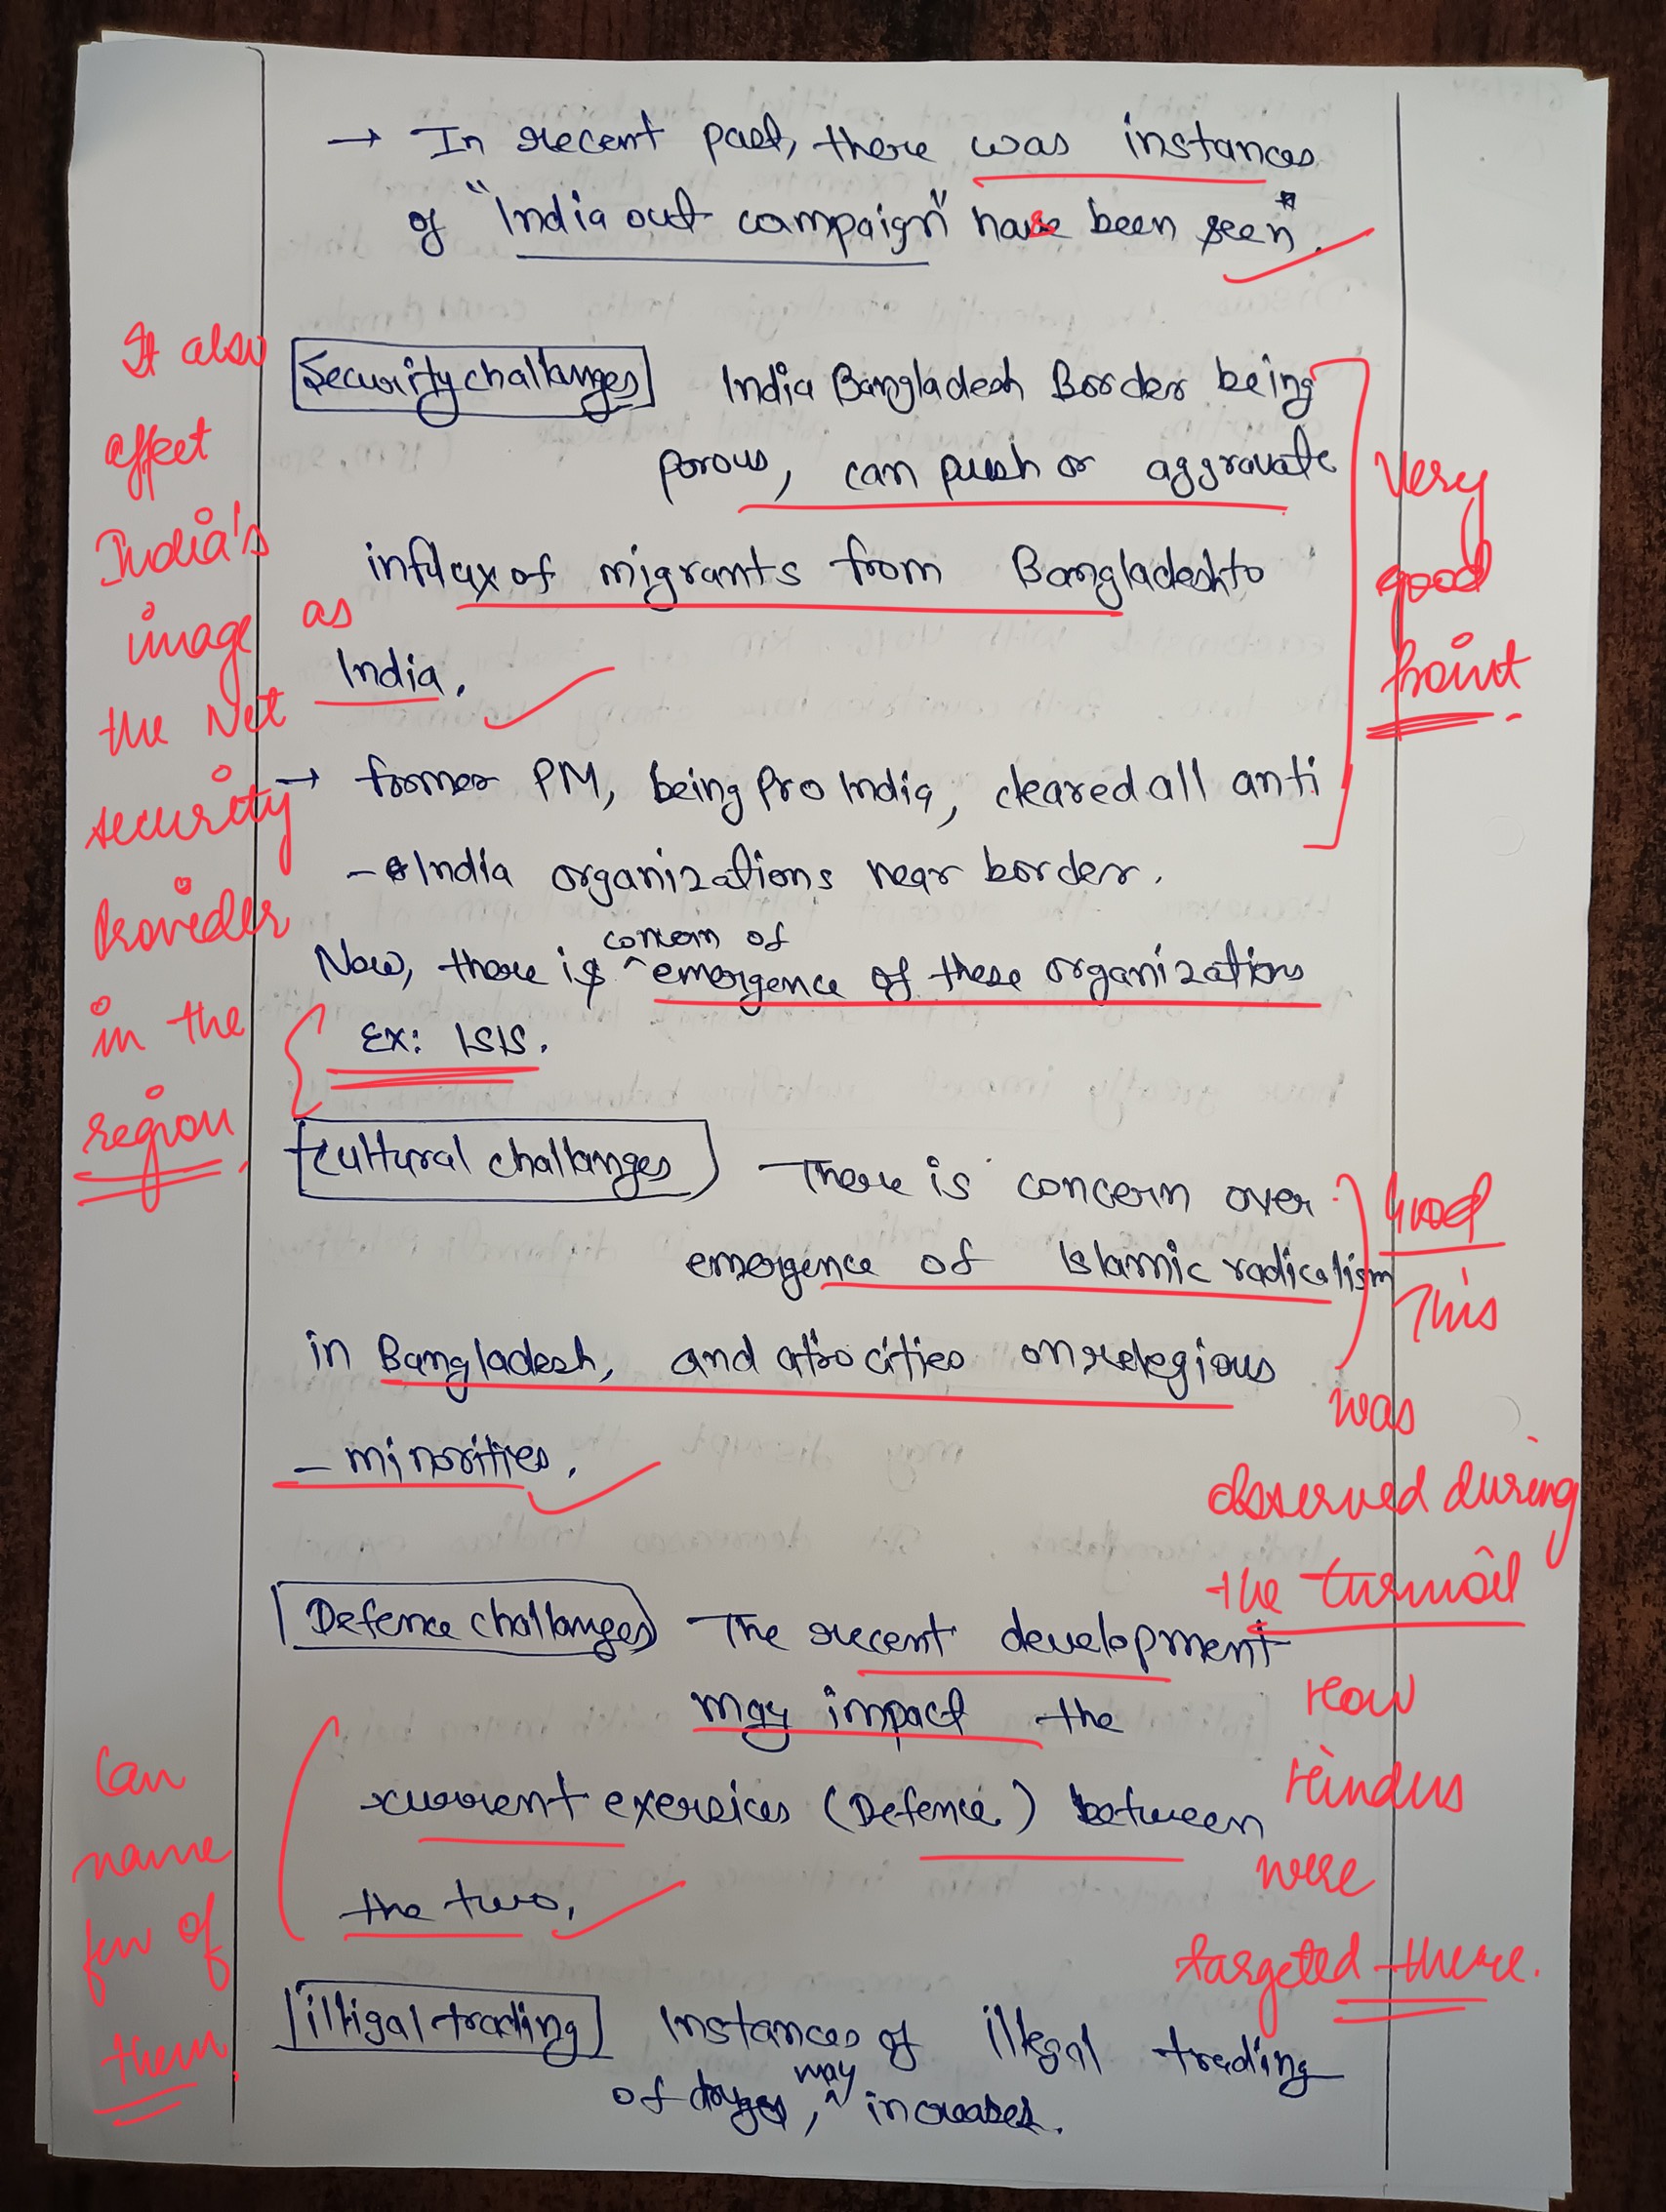 → In recent past, there was instances
of "India out campaign" have been seen".
Security challanges India Bangladesh Border being
porous, can push or aggravate
influx of migrants from Bangladesh to
India.
→ former PM, being Pro India, cleared all anti
- India organizations near border.
Now, there is ^ concern of emergence of these organizations
Ex: ISIS.
Cultural challanges There is concern over
emergence of Islamic radicalism
in Bangladesh, and atrocities on relegious
- minorities.
Defence challanges The recent development
may impact the
current exercises (Defence) between
the two.
illigal trading Instances of illegal trading
of druges, ^ may increases.
It also
affect
India's
image as
the Net
security
Provider
in the
region.
Very
good
point.
Good
This
was
observed during
the turmoil
how
hindus
were
targeted there.
Can
name
few of
them.